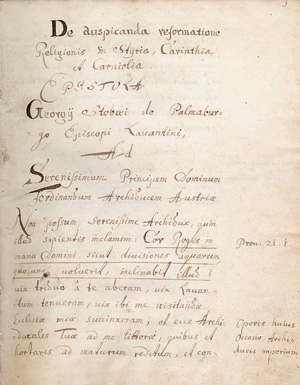 De auspicanda reformatione
Religionis in Styria, Carinthia,
et Carniolia.
EPISTOLA
Georgij Stobæi de Palmabur-
go Episcopi Lavantini,
Ad
Serenissimum Principem Dominum
Ferdinandum Archiducem Austriæ
Non possum, Serenissime Archidux, quin
illud sapientis inclamem: Cor Regis in
manu Domini, sicut divisiones aquarum
quocunq voluerit, inclinabit illud:
vix triduo à te aberam, vix Lavan-
tum tenueram, vix ibi me visitandæ
Ecclesiæ meæ succinxeram; et ecce Archi-
ducales Tuæ ad me litteræ, quibus et
hortaris ad maturum reditum, et con-
Prou. 21. 1
huius
Archi-
ducis imperium